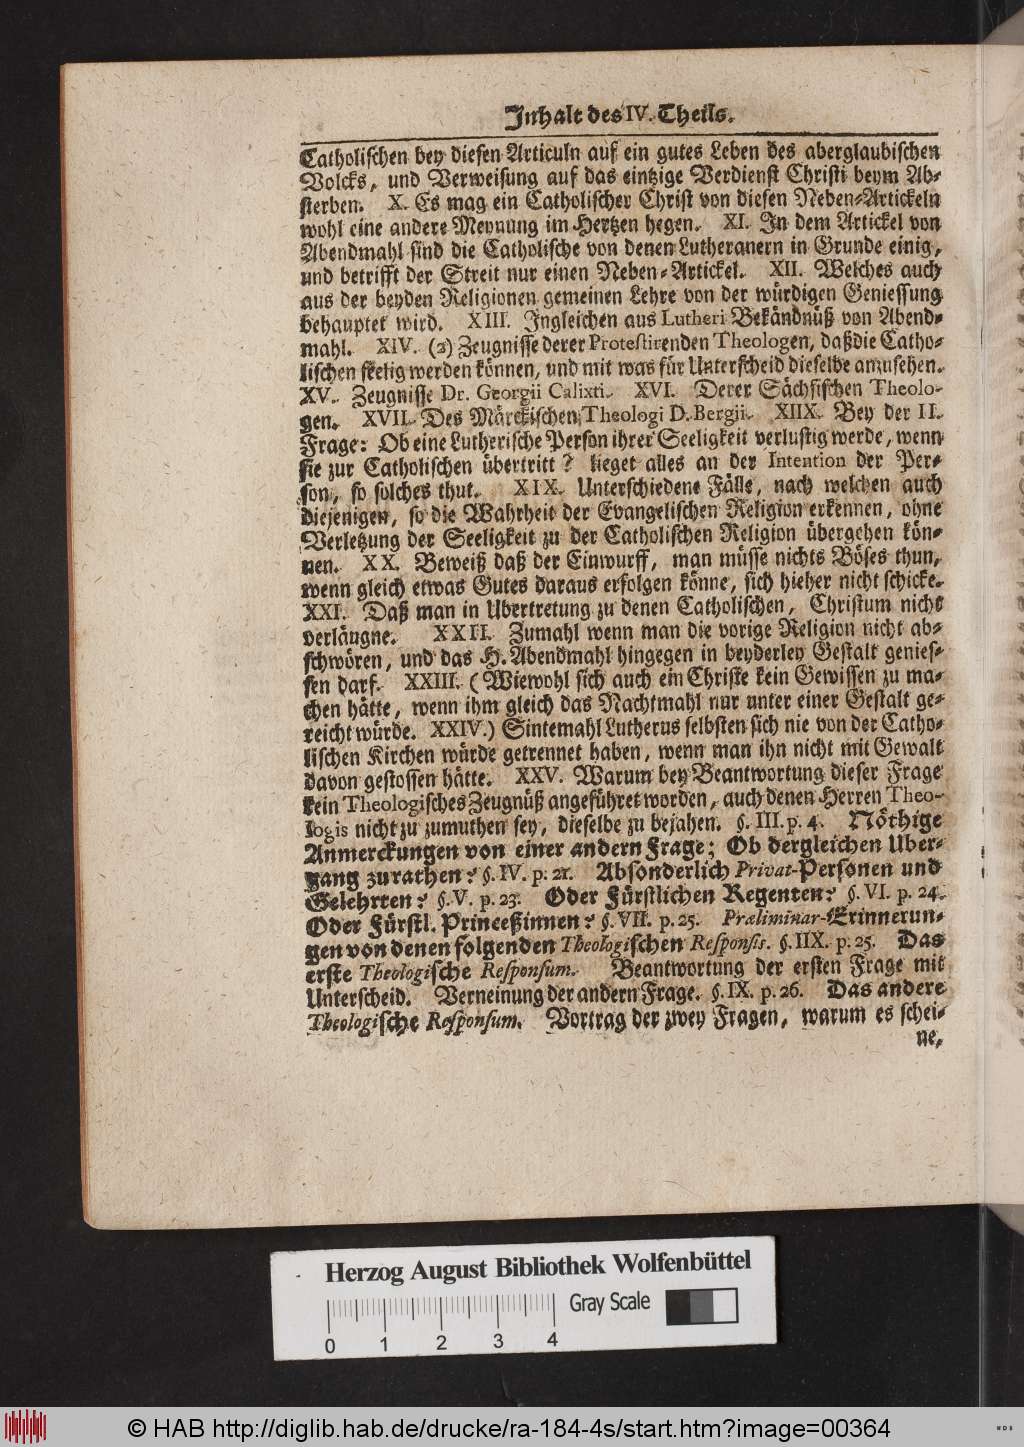 Inhalt des IV. Theils.
Catholischen bey diesen Articuln auf ein gutes Leben des aberglaubischen
Volcks, und Verweisung auf das eintzige Verdienst Christi beym Ab-
sterben. X. Es mag ein Catholischer Christ von diesen Neben-Artickeln
wohl eine andere Meynung im Hertzen hegen. XI. In dem Artickel von
Abendmahl sind die Catholische von denen Lutheranern in Grunde einig,
und betrifft der Streit nur einen Neben-Artickel. XII. Welches auch
aus der beyden Religionen gemeinen Lehre von der würdigen Geniessung
behauptet wird. XIII. Ingleichen aus Lutheri Bekändnüß von Abend-
mahl. XIV. (2) Zeugnisse derer Protestirenden Theologen, daß die Catho-
lischen seelig werden können, und mit was für Unterscheid dieselbe anzusehen.
XV. Zeugnisse Dr. Georgii Calixti. XVI. Derer Sächsischen Theolo-
gen. XVII. Des Märckischen Theologi D. Bergii. XIIX. Bey der II.
Frage: Ob eine Lutherische Person ihrer Seeligkeit verlustig werde, wenn
sie zur Catholischen übertritt? lieget alles an der Intention der Per-
son, so solches thut. XIX. Unterschiedene Fälle, nach welchen auch
diejenigen, so die Wahrheit der Evangelischen Religion erkennen, ohne
Verletzung der Seeligkeit zu der Catholischen Religion übergehen kön-
nen. XX. Beweiß daß der Einwurff, man müsse nichts Böses thun,
wenn gleich etwas Gutes daraus erfolgen könne, sich hieher nicht schicke.
XXI. Daß man in Ubertretung zu denen Catholischen, Christum nicht
verläugne. XXII. Zumahl wenn man die vorige Religion nicht ab-
schwören, und das H. Abendmahl hingegen in beyderley Gestalt genies-
sen darf. XXIII. (Wiewohl sich auch ein Christe kein Gewissen zu ma-
chen hätte, wenn ihm gleich das Nachtmahl nur unter einer Gestalt ge-
reicht würde. XXIV.) Sintemahl Lutherus selbsten sich nie von der Catho-
lischen Kirchen würde getrennet haben, wenn man ihn nicht mit Gewalt
davon gestossen hätte. XXV. Warum bey Beantwortung dieser Frage
kein Theologisches Zeugnüß angeführet worden, auch denen Herren Theo-
logis nicht zu zumuthen sey, dieselbe zu bejahen. §. III. p. 4. Nöthige
Anmerckungen von einer andern Frage; Ob dergleichen Uber-
gang zu rathen? §. IV. p. 21. Absonderlich Privat-Personen und
Gelehrten? §. V. p. 23. Oder Fürstlichen Regenten? §. VI. p. 24.
Oder Fürstl. Princeßinnen? §. VII. p. 25. Præliminar-Erinnerun-
gen von denen folgenden Theologischen Responsis. §. IIX. p. 25. Das
erste Theologische Responsum. Beantwortung der ersten Frage mit
Unterscheid. Verneinung der andern Frage. §. IX. p. 26. Das andere
Theologische Responsum. Vortrag der zwey Fragen, warum es schei-
ne,
Herzog August Bibliothek Wolfenbüttel
Gray Scale
0 1 2 3 4
© HAB http://diglib.hab.de/drucke/ra-184-4s/start.htm?image=00364